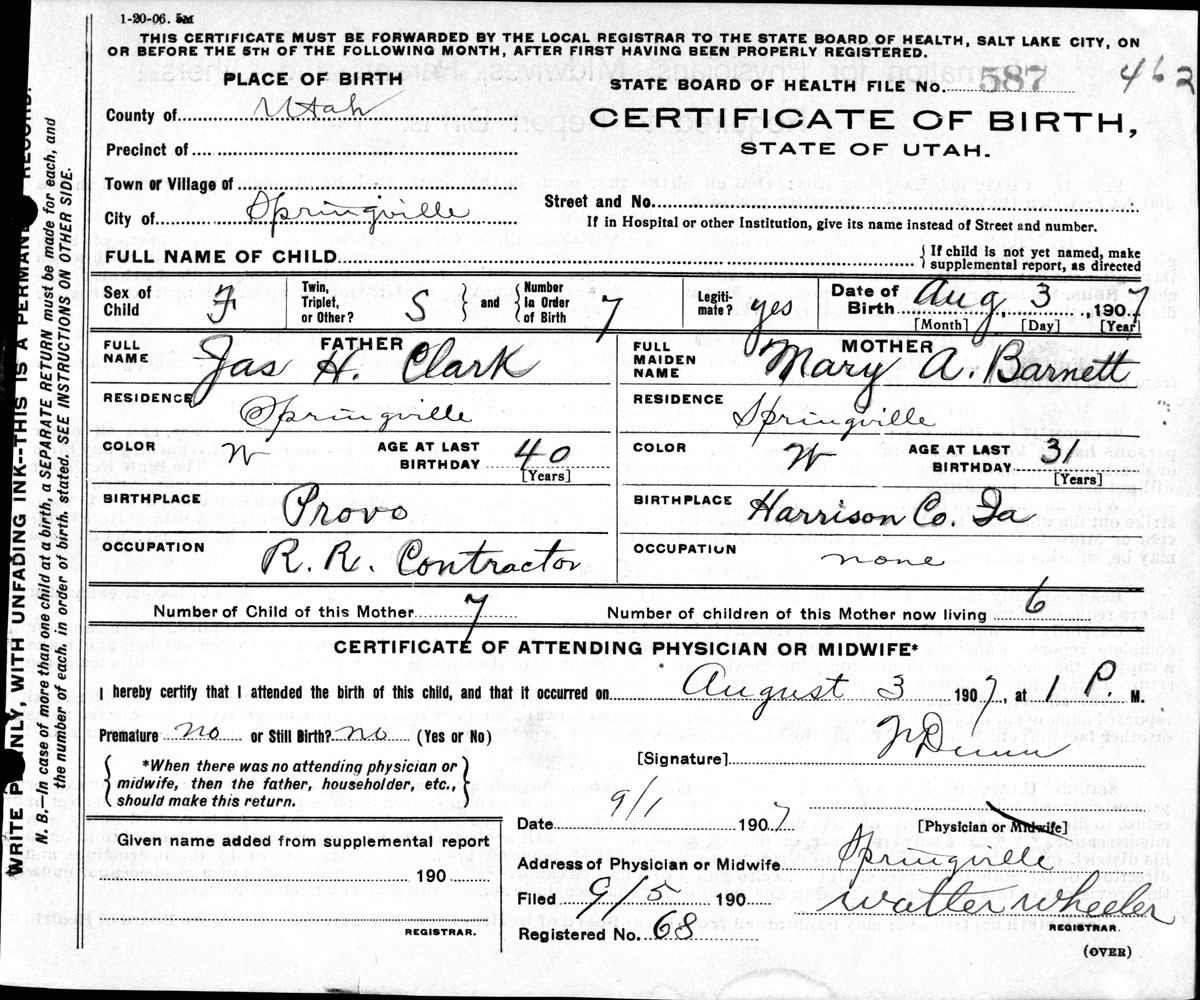 1-20-06. 5M
THIS CERTIFICATE MUST BE FORWARDED BY THE LOCAL REGISTRAR TO THE STATE BOARD OF HEALTH, SALT LAKE CITY, ON
OR BEFORE THE 5TH OF THE FOLLOWING MONTH, AFTER FIRST HAVING BEEN PROPERLY REGISTERED.
PLACE OF BIRTH
STATE BOARD OF HEALTH FILE No. 587 462
County of Utah
CERTIFICATE OF BIRTH,
STATE OF UTAH.
Precinct of
Town or Village of
Street and No.
City of Springville
If in Hospital or other Institution, give its name instead of Street and number.
FULL NAME OF CHILD { If child is not yet named, make
supplemental report, as directed
Sex of Child F Twin, Triplet, or Other? S and { Number In Order of Birth 7 Legiti-mate? yes Date of Birth Aug, 3, 1907
[Month] [Day] [Year]
FULL NAME FATHER Jas H. Clark
FULL MAIDEN NAME MOTHER Mary A. Barnett
RESIDENCE Springville
RESIDENCE Springville
COLOR W AGE AT LAST BIRTHDAY 40 [Years]
COLOR W AGE AT LAST BIRTHDAY 31 [Years]
BIRTHPLACE Provo
BIRTHPLACE Harrison Co. Ia
OCCUPATION R. R. Contractor
OCCUPATION none
Number of Child of this Mother 7 Number of children of this Mother now living 6
CERTIFICATE OF ATTENDING PHYSICIAN OR MIDWIFE*
I hereby certify that I attended the birth of this child, and that it occurred on August 3 1907, at 1 P. M.
Premature no or Still Birth? no (Yes or No)
[Signature] Dunn
{ *When there was no attending physician or
midwife, then the father, householder, etc.,
should make this return. }
Date 9/1 1907 [Physician or Midwife]
Given name added from supplemental report
190
REGISTRAR.
Address of Physician or Midwife Springville
Filed 9/5 190 Walter Wheeler
REGISTRAR.
Registered No. 68
(OVER)
WRITE PLAINLY, WITH UNFADING INK--THIS IS A PERMANENT RECORD.
N. B.—In case of more than one child at a birth, a SEPARATE RETURN must be made for each, and
the number of each. in order of birth. stated. SEE INSTRUCTIONS ON OTHER SIDE.